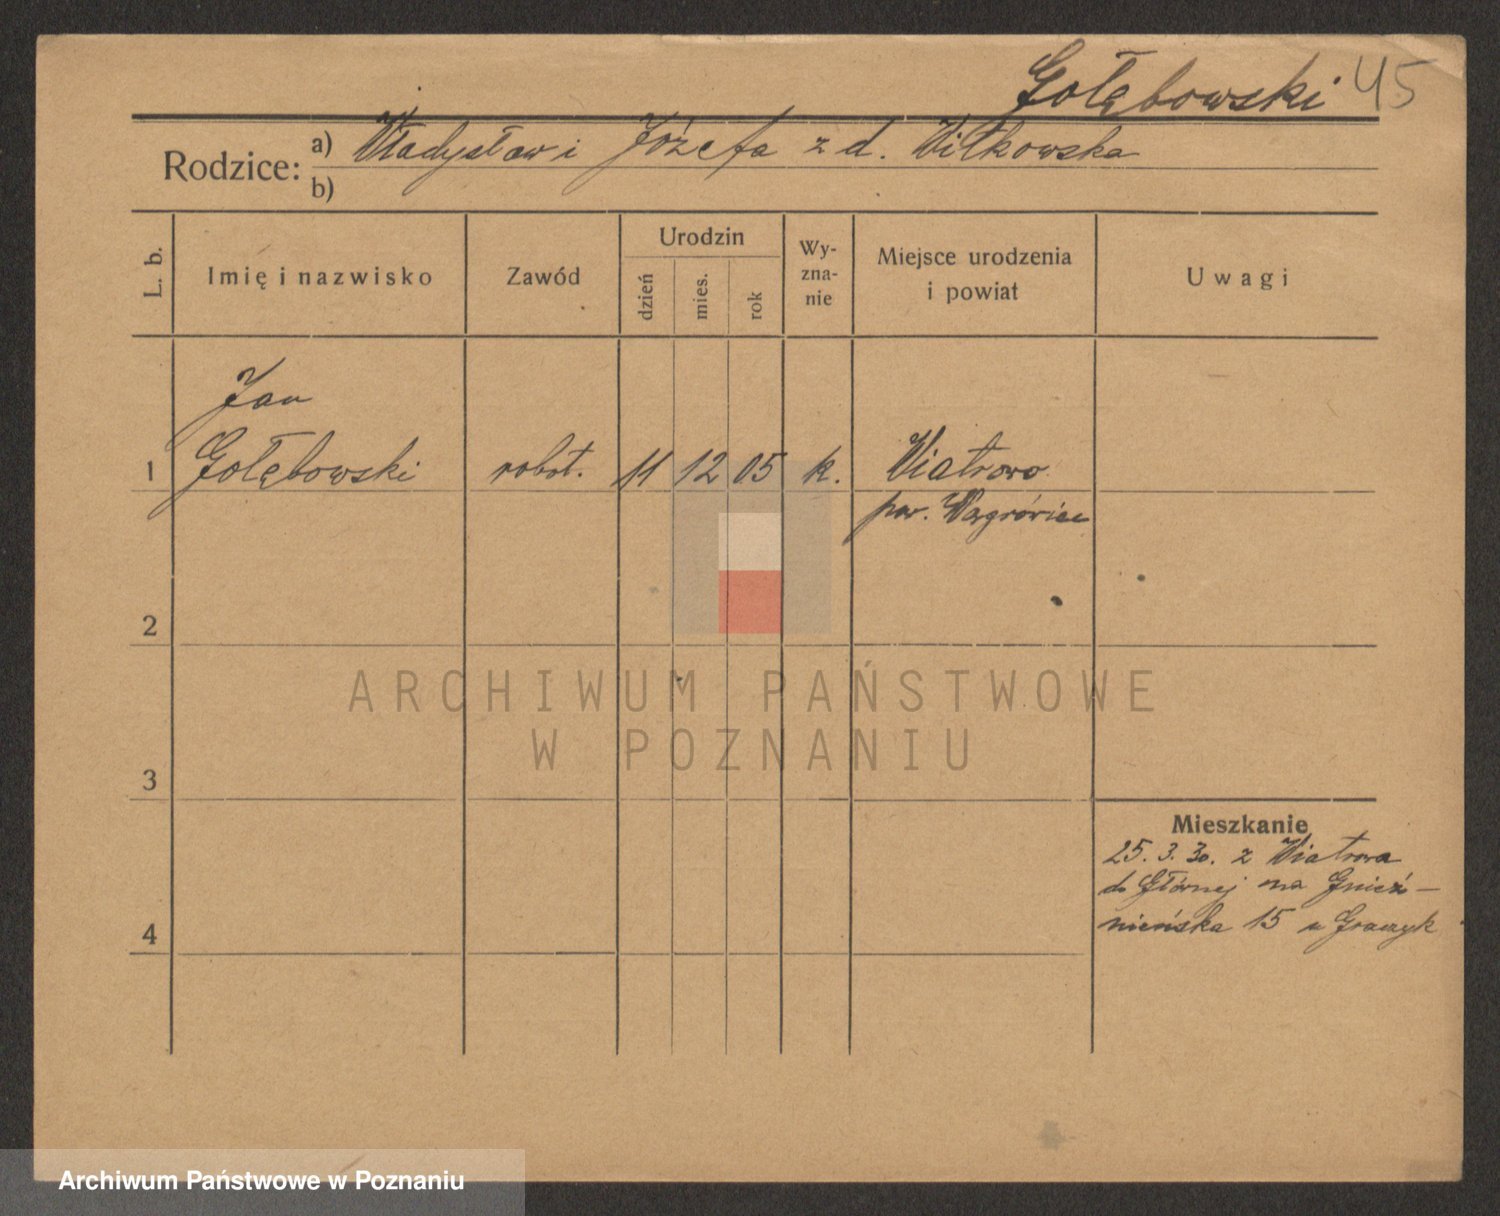 Gołębowski 45
Rodzice: a) Władysław i Józefa z d. Wiłkowska
b)
L. b.
Imię i nazwisko
Zawód
Urodzin
dzień
mies.
rok
Wy-
zna-
nie
Miejsce urodzenia
i powiat
Uwagi
Jan
1 Gołębowski robot. 11 12 05 k. Wiatrowo
pow. Wągrówiec
2
ARCHIWUM PAŃSTWOWE
W POZNANIU
3
Mieszkanie
25. 3. 30. z Wiatrowa
do Głównej na Gnieź-
nieńska 15 u Graczyk
4
Archiwum Państwowe w Poznaniu